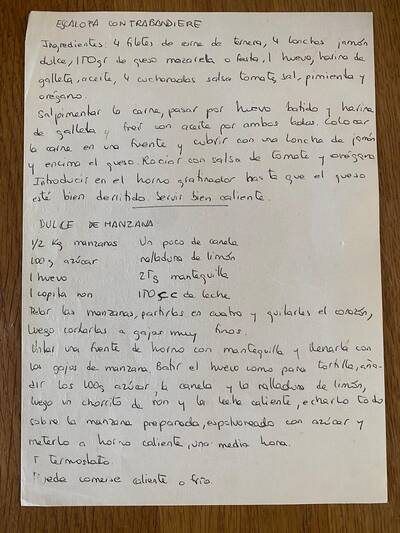 ESCALOPA CONTRABANDIERE
Ingredientes: 4 filetes de carne de ternera, 4 lonchas jamón
dulce, 170gr de queso mozarela o fasta, 1 huevo, harina de
galleta, aceite, 4 cucharadas salsa tomate, sal, pimienta y
orégano.
Salpimentar la carne, pasar por huevo batido y harina
de galleta y freír con aceite por ambos lados. Colocar
la carne en una fuente y cubrir con una loncha de jamón
y encima el queso. Rociar con salsa de tomate y orégano
Introducir en el horno gratinador hasta que el queso
esté bien derritido. Servir bien caliente.
DULCE DE MANZANA
1/2 Kg manzanas Un poco de canela
100g azúcar ralladura de limón
1 huevo 25g mantequilla
1 copita ron 170 cc de leche
Pelar las manzanas, partirlas en cuatro y quitarles el corazón,
luego cortarlas a gajos muy finos.
Untar una fuente de horno con mantequilla y llenarla con
los gajos de manzana. Batir el huevo como para tortilla, aña-
dir los 100g azúcar, la canela y la ralladura de limón,
luego un chorrito de ron y la leche caliente, echarlo todo
sobre la manzana preparada, espolvoreado con azúcar y
meterlo a horno caliente, una media hora.
termostato.
Puede comerse caliente o frío.